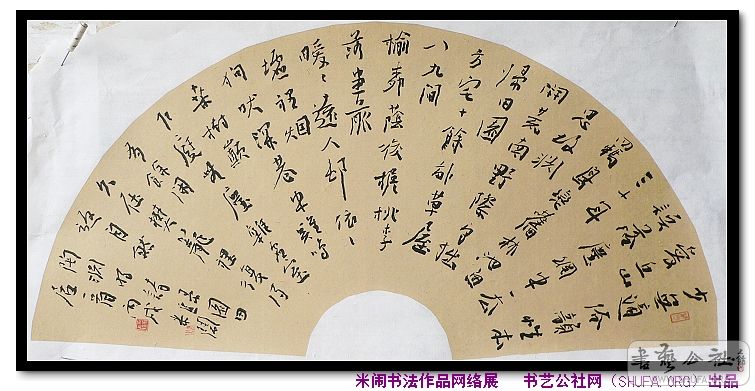 少無適俗韻性本
愛丘山
誤落塵網中一去
三十年
羈鳥戀舊林池魚
思故淵
開荒南野際守拙
歸園田
方宅十餘畝草屋
八九間
榆柳蔭後檐桃李
羅堂前
曖曖遠人邨依依
墟里烟
狗吠深巷中雞鳴
桑樹顛
戶庭無塵雜虛室
有餘閒
久在樊籠裡復得
返自然
陶淵明詩歸園田
居
書藝公社
米闹书法作品网络展 书艺公社网（SHUFA.ORG）出品